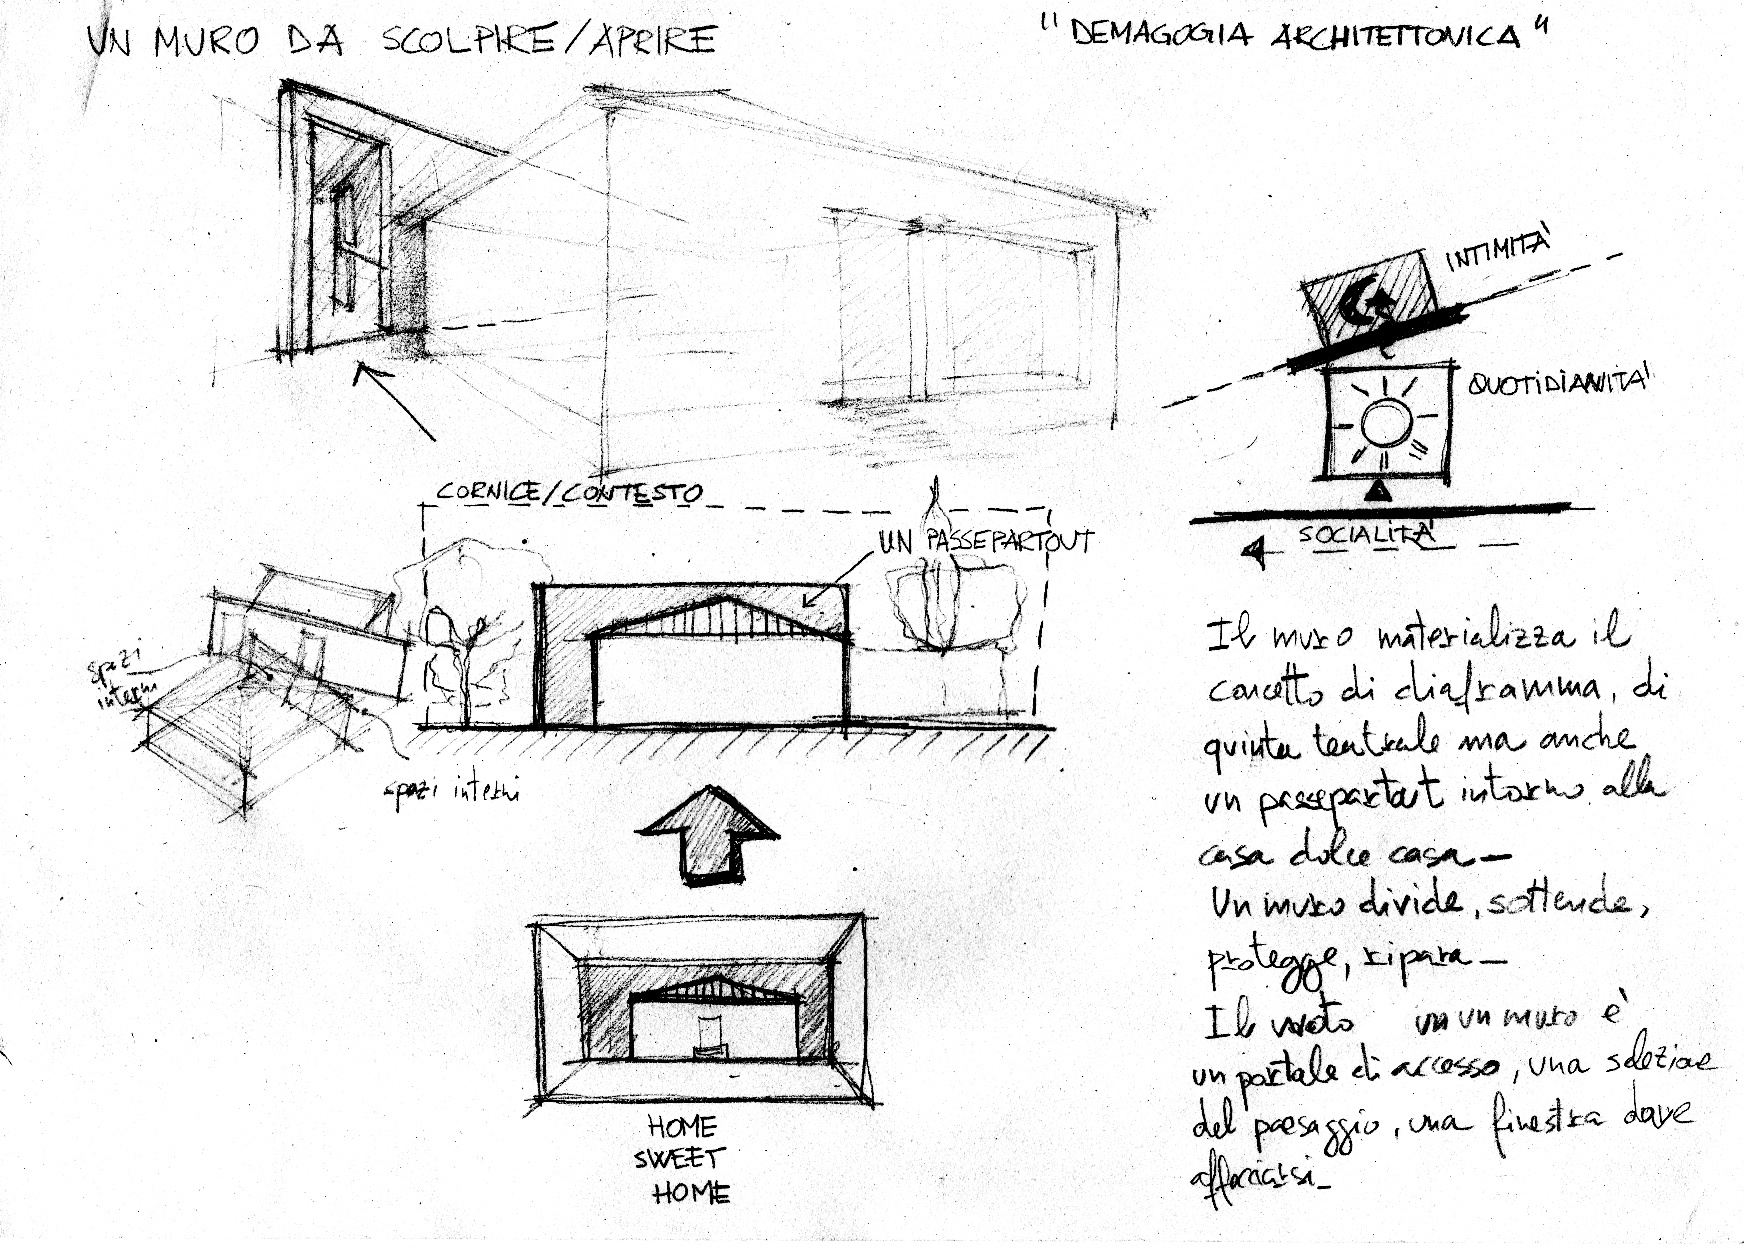 UN MURO DA SCOLPIRE/APRIRE
"DEMAGOGIA ARCHITETTONICA"
INTIMITA'
QUOTIDIANITA'
SOCIALITA'
CORNICE/CONTESTO
UN PASSEPARTOUT
spazi
interni
spazi interni
HOME
SWEET
HOME
Il muro materializza il
concetto di diaframma, di
quinta teatrale ma anche
un passepartout intorno alla
casa dolce casa—
Un muro divide, sottende,
protegge, ripara—
Il vuoto un muro è
un portale di accesso, una selezione
del paesaggio, una finestra dove
affacciarsi—